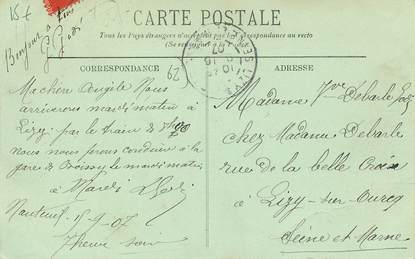 15€
Bonjour à
CARTE POSTALE
Tous les Pays étrangers n'acceptent pas la Correspondance au recto
(Se renseigner à la Poste)
CORRESPONDANCE
(29)
ADRESSE
Ma chère Angèle Nous
arriverons mardi matin
à Lizy par le train de
nous nous ferons conduire à la
gare de Crouy le mardi matin
à Mardi
Nanteuil 15-9-07
7 heure soir
Madame Vve Delarle
chez Madame Delarle
rue de la belle Croix
à Lizy-sur-Ourcq
Seine et Marne